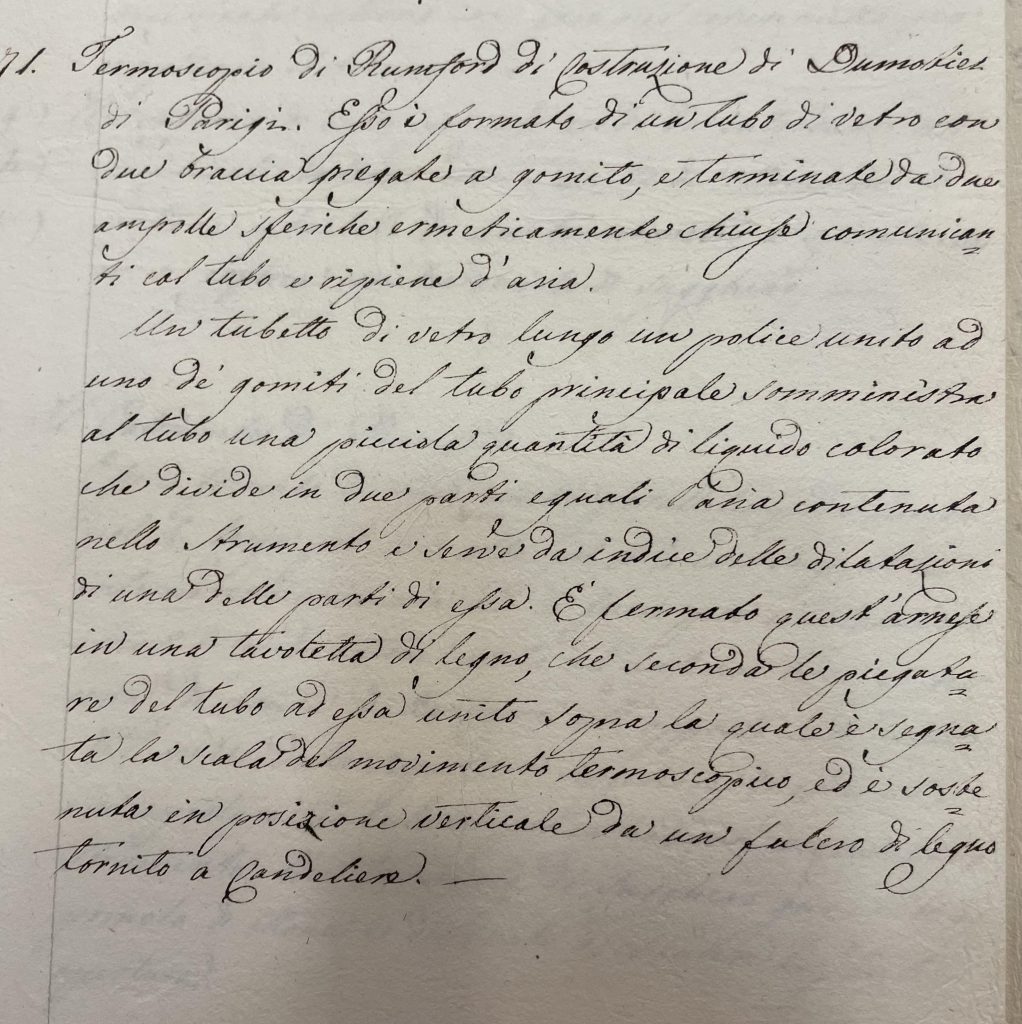 71. Termoscopio di Rumford di Costruzione di Dumotiez
di Parigi. Esso è formato di un tubo di vetro con
due braccia piegate a gomito, e terminate da due
ampolle sferiche ermeticamente chiuse comunican=
ti col tubo e ripiene d'aria.
Un tubetto di vetro lungo un police unito ad
uno de' gomiti del tubo principale somministra
al tubo una picciola quantità di liquido colorato
che divide in due parti eguali l'aria contenuta
nello strumento e serve da indice delle dilatazioni
di una delle parti di essa. È fermato quest'arnese
in una tavoletta di legno, che seconda le piegatu=
re del tubo ad essa unito sopra la quale è segna=
ta la scala del movimento termoscopico, ed è soste=
nuta in posizione verticale da un fulcro di legno
tornito a Candeliere. —